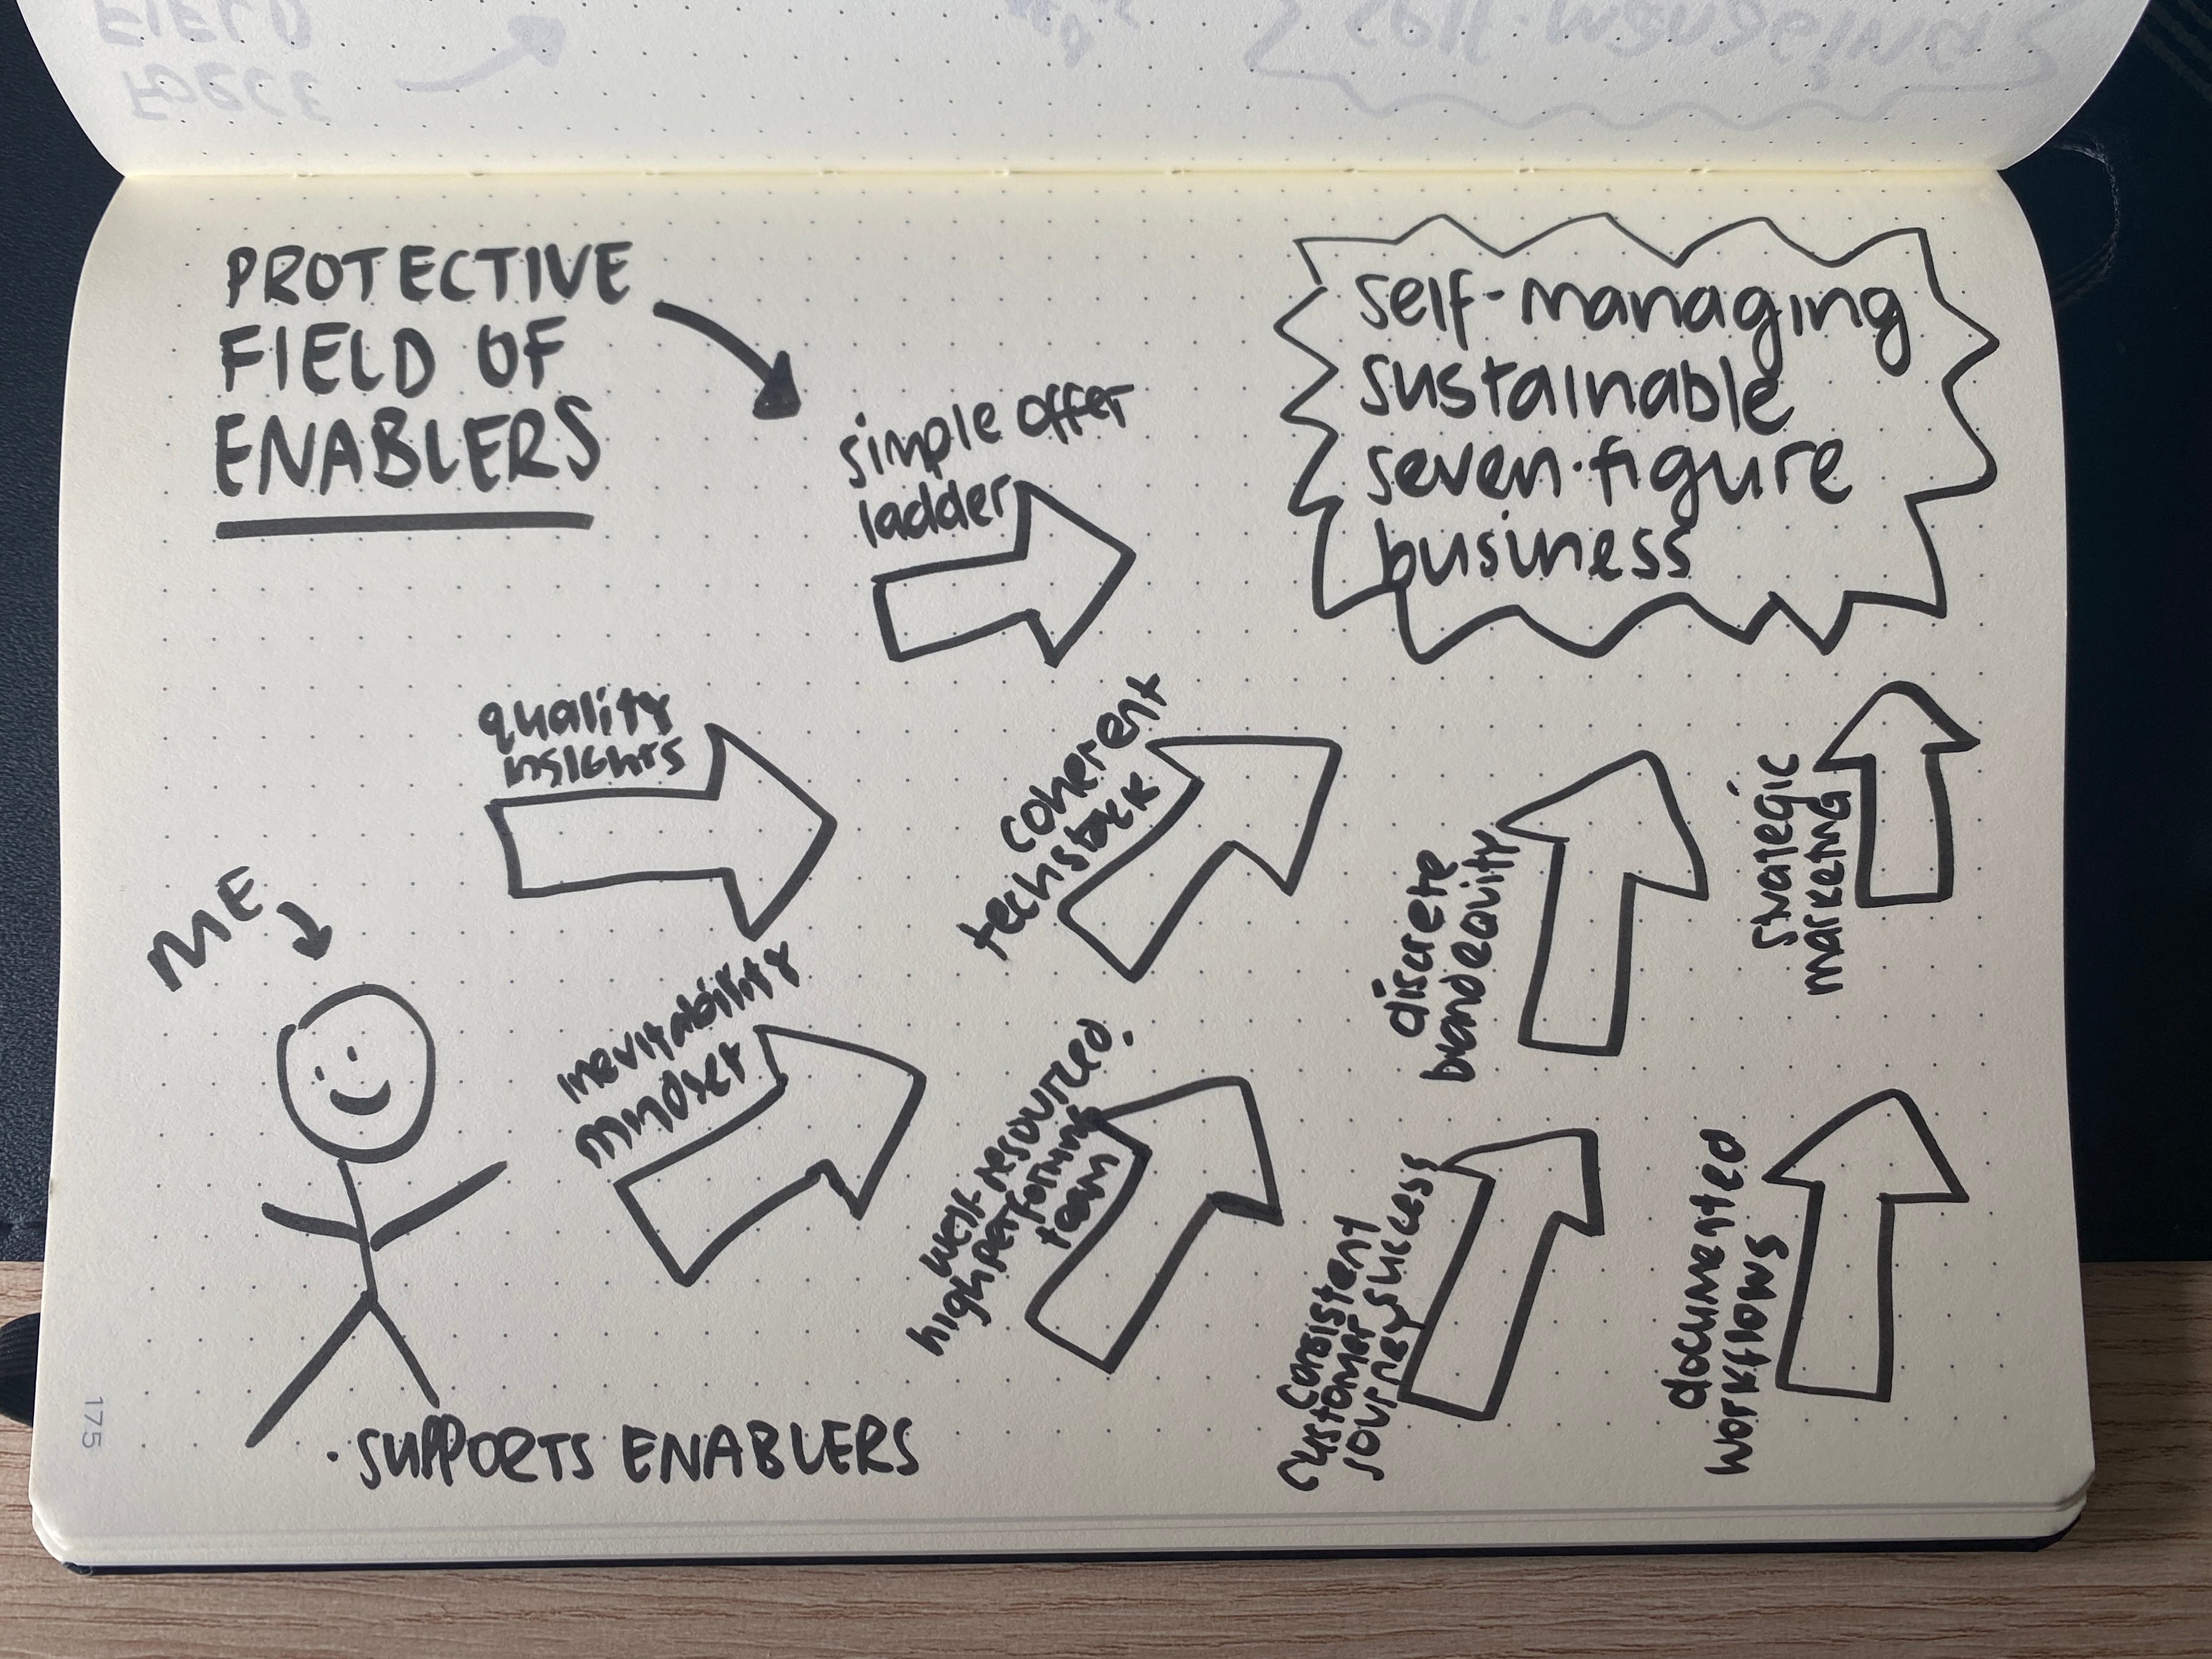 PROTECTIVE
FIELD OF
ENABLERS
self-managing
sustainable
seven-figure
business
simple offer
ladder
quality
insights
coherent
techstack
strategic
marketing
discrete
brand equity
ME
inevitability
mindset
well-resourced.
high performing
team
consistent
customer
journey success
documented
workflows
· SUPPORTS ENABLERS
175
FORCE
FIELD
self-managing